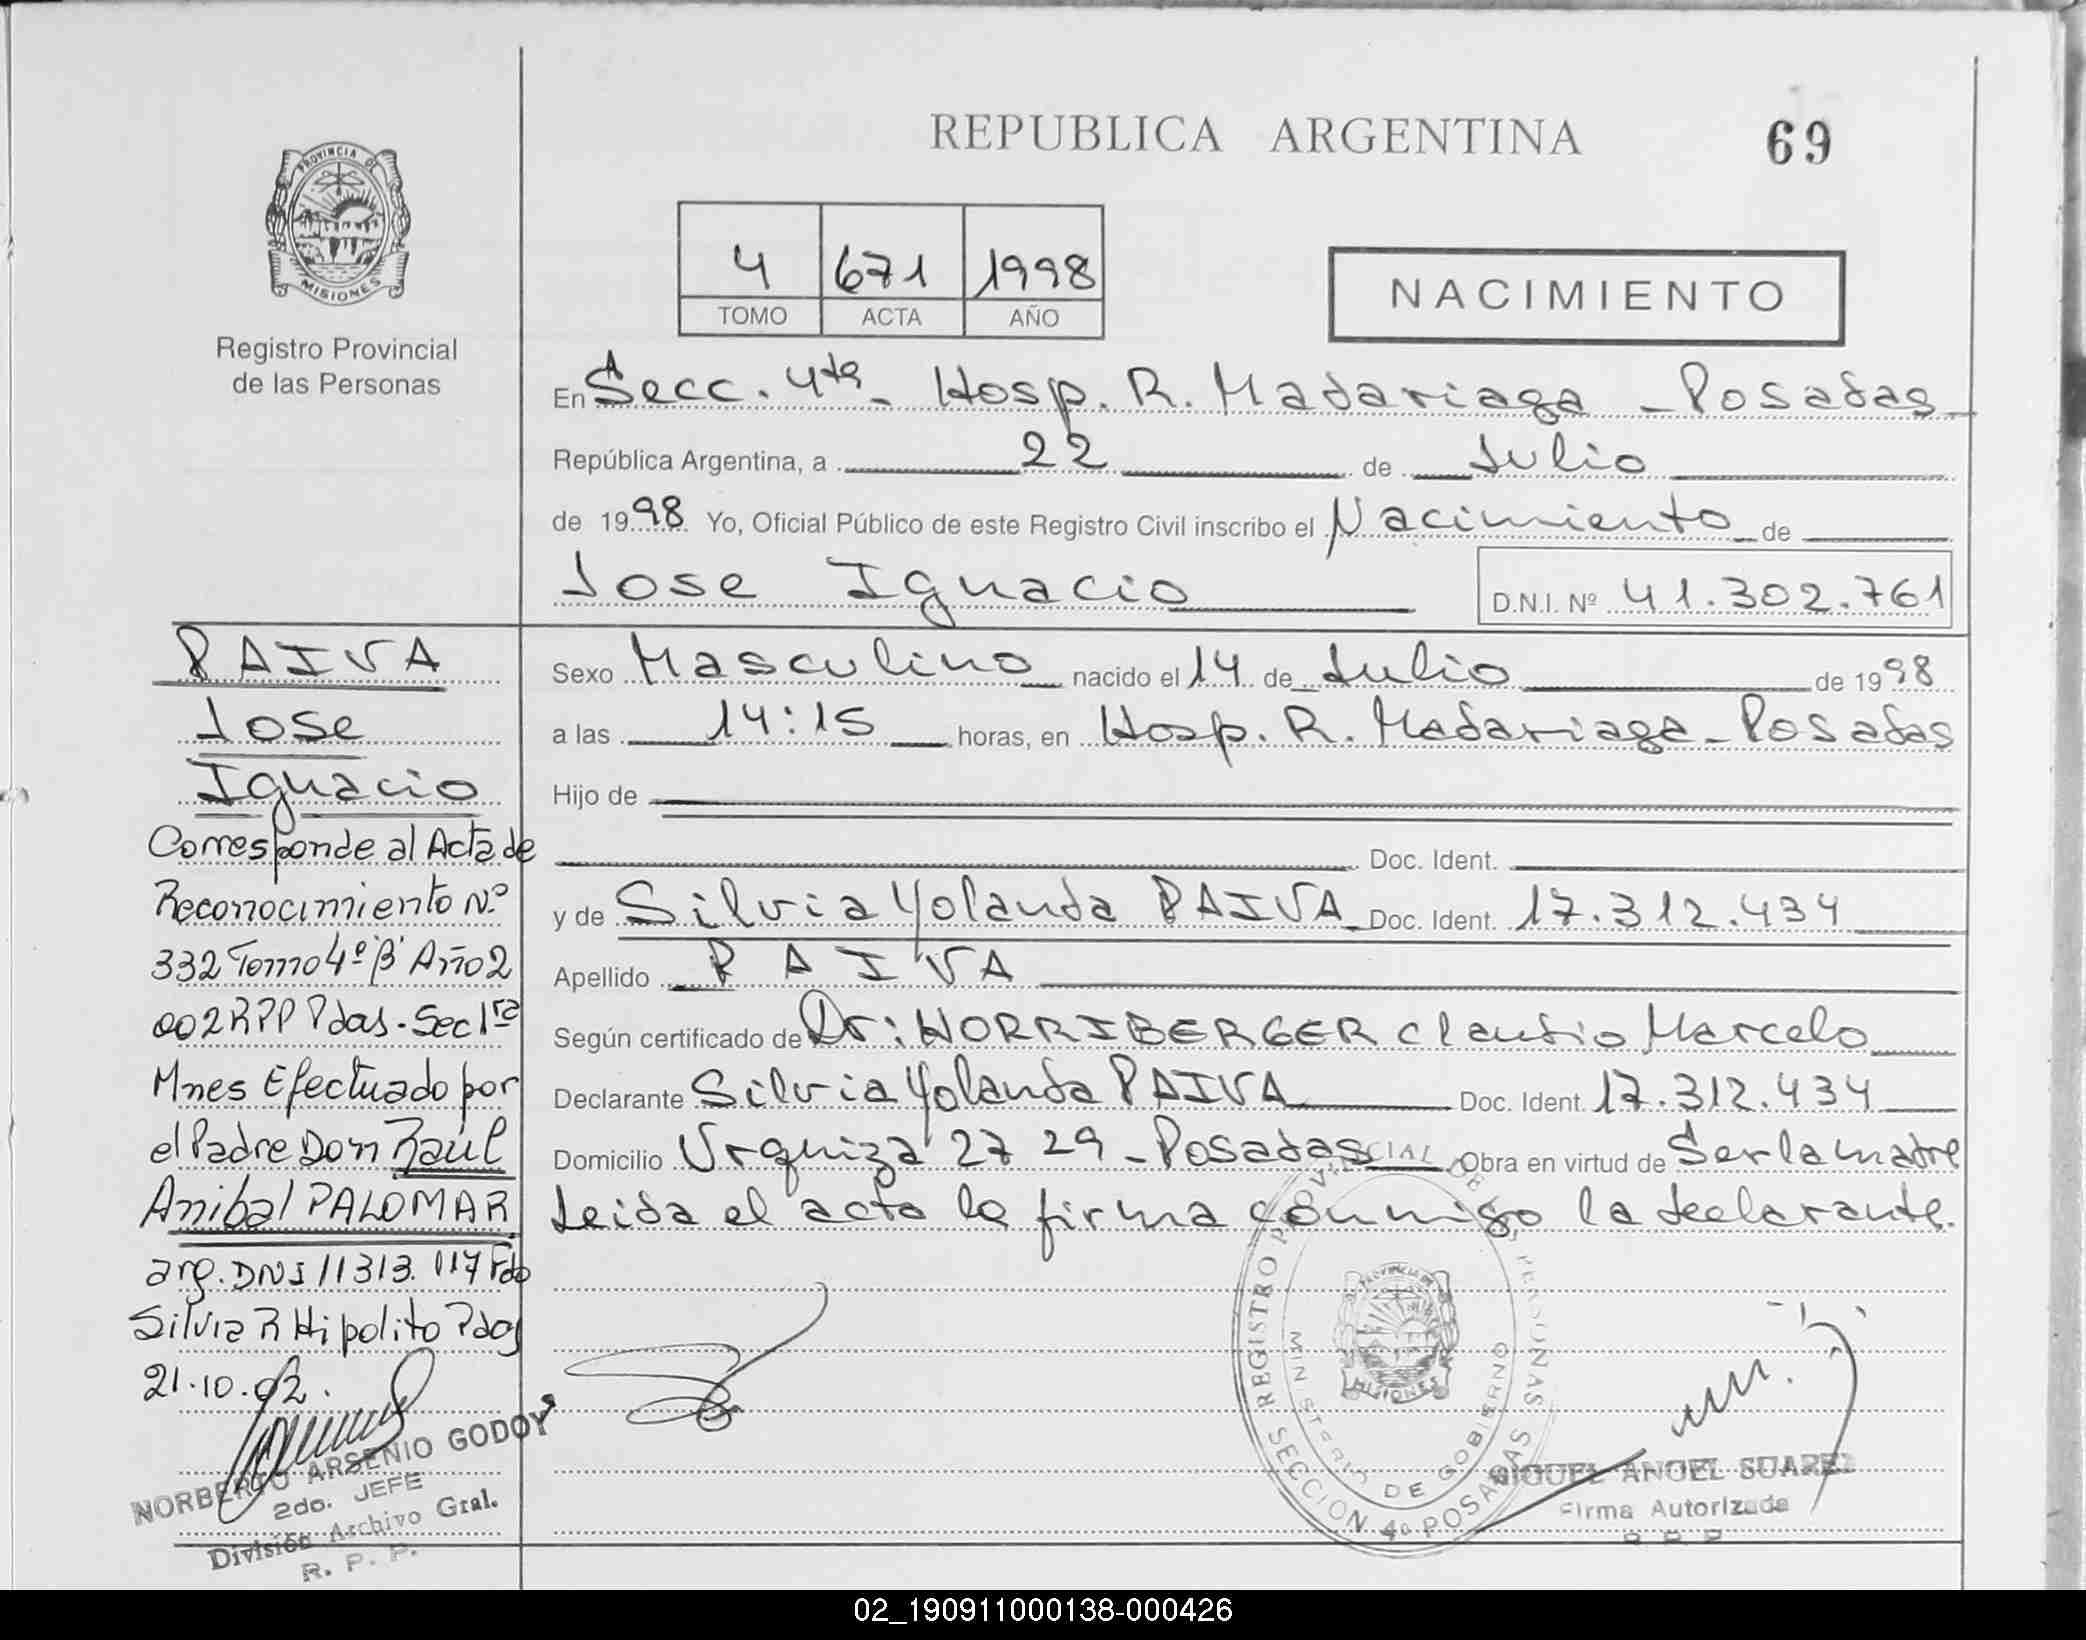 REPUBLICA ARGENTINA
69
PROVINCIA DE
MISIONES
Registro Provincial
de las Personas
4 671 1998
TOMO ACTA AÑO
NACIMIENTO
En Secc. 4ta - Hosp. R. Madariaga - Posadas
República Argentina, a 22 de Julio
de 1998 Yo, Oficial Público de este Registro Civil inscribo el Nacimiento de
Jose Ignacio D.N.I. Nº 41.302.761
Sexo Masculino nacido el 14 de Julio de 1998
a las 14:15 horas, en Hosp. R. Madariaga - Posadas
Hijo de
Doc. Ident.
y de Silvia Yolanda PAIVA Doc. Ident. 17.312.434
Apellido PAIVA
Según certificado de Dr: NORRIBERGER Claudio Marcelo
Declarante Silvia Yolanda PAIVA Doc. Ident. 17.312.434
Domicilio Urquiza 27 29 - Posadas Obra en virtud de Ser la madre
Leida el acta la firma conmigo la declarante.
PAIVA
Jose
Ignacio
Corresponde al Acta de
Reconocimiento Nº
332 Tomo 4º "B" Año 2
002 RPP Pdas. Sec 1ra
Mnes Efectuado por
el Padre Don Raúl
Anibal PALOMAR
arg. DNI 11313.117 Fdo
Silvia R Hipolito Pdas
21.10.02.
NORBERTO ARSENIO GODOY
2do. JEFE
División Archivo Gral.
R. P. P.
REGISTRO PROVINCIAL DE LAS PERSONAS
SECCION 4a POSADAS
MINISTERIO DE GOBIERNO
PROVINCIA DE
MISIONES
MIGUEL ANGEL SUAREZ
Firma Autorizada
R P P
02_190911000138-000426